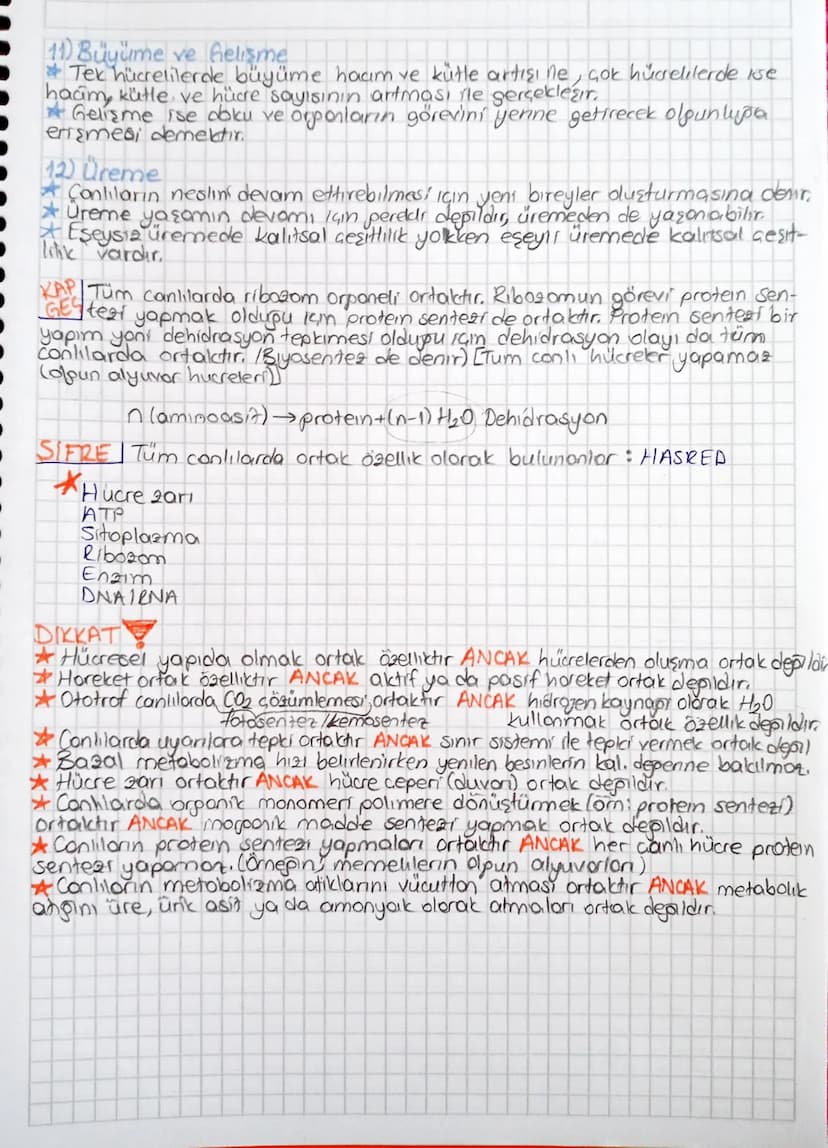 11) Büyüme ve Gelişme
★ Tek hücrelilerde büyüme hacim ve kütle artışı ile, çok hücrelilerde ise
hacim, kütle ve hücre sayısının artması ile gerçekleşir.
★ Gelişme ise doku ve organların görevini yerine getirecek olgunluğa
erişmesi demektir.
12) Üreme
★ Canlıların neslini devam ettirebilmesi için yeni bireyler oluşturmasına denir.
★ Üreme yaşamın devamı için gerekli değildir, üremeden de yaşanabilir.
★ Eşeysiz üremede kalıtsal çeşitlilik yokken eşeyli üremede kalıtsal çeşit-
lilik vardır.
KAP GEÇ | Tüm canlılarda ribozom organeli ortaktır. Ribozomun görevi protein sen-
tezi yapmak olduğu için protein sentezi de ortaktır. Protein sentezi bir
yapım yani dehidrasyon tepkimesi olduğu için dehidrasyon olayı da tüm
canlılarda ortaktır. (Biyosentez de denir) [Tüm canlı hücreler yapamaz
(olgun alyuvar hücreleri)]
n(aminoasit) → protein + (n-1) H₂O Dehidrasyon
ŞİFRE | Tüm canlılarda ortak özellik olarak bulunanlar : HASRED
★ Hücre zarı
ATP
Sitoplazma
Ribozom
Enzim
DNA/RNA
DİKKAT !
★ Hücresel yapıda olmak ortak özelliktir ANCAK hücrelerden oluşma ortak değildir
★ Hareket ortak özelliktir ANCAK aktif ya da pasif hareket ortak değildir.
★ Ototrof canlılarda CO₂ özümlemesi ortaktır ANCAK hidrojen kaynağı olarak H₂O
fotosentez/kemosentez kullanmak ortak özellik değildir.
★ Canlılarda uyarılara tepki ortaktır ANCAK sinir sistemi ile tepki vermek ortak değil
★ Bazal metabolizma hızı belirlenirken yenilen besinlerin kal. değerine bakılmaz.
★ Hücre zarı ortaktır ANCAK hücre çeperi (duvarı) ortak değildir.
★ Canlılarda organik monomeri polimere dönüştürmek (örn: protein sentezi)
ortaktır ANCAK inorganik madde sentezi yapmak ortak değildir.
★ Canlıların protein sentezi yapmaları ortaktır ANCAK her canlı hücre protein
sentezi yapamaz. (Örneğin; memelilerin olgun alyuvarları)
★ Canlıların metabolizma atıklarını vücuttan atması ortaktır ANCAK metabolik
atığını üre, ürik asit ya da amonyak olarak atmaları ortak değildir.